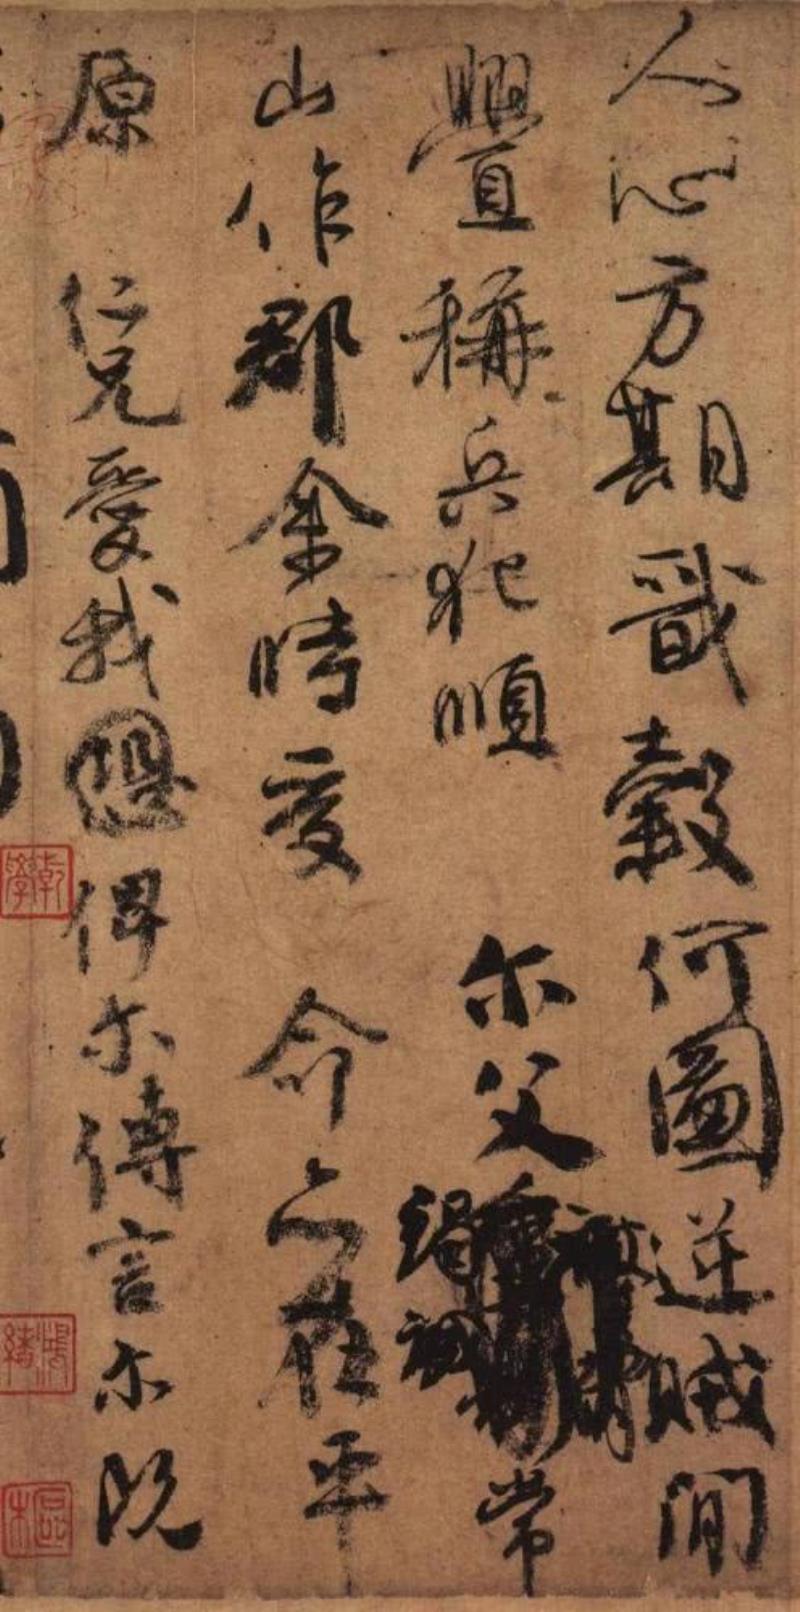 人心方期戩穀何圖逆賊間
舋稱兵犯順 尔父竭誠常
山作郡余時受 命亦在平
原 仁兄愛我俾尔傳言尔既
乾學
鴻緒